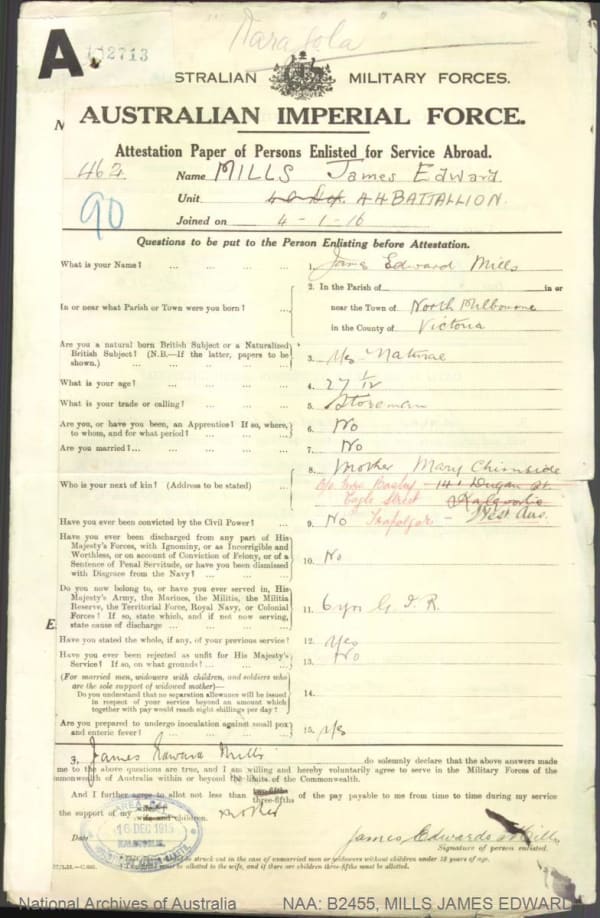 "Karagola"
A
STRALIAN MILITARY FORCES.
AUSTRALIAN IMPERIAL FORCE.
Attestation Paper of Persons Enlisted for Service Abroad.
Name MILLS James Edward.
90
Unit 44 BATTALLION.
Joined on 4-1-16
Questions to be put to the Person Enlisting before Attestation.
What is your Name? ... ... ... 1. James Edward Mills
2. In the Parish of in or
In or near what Parish or Town were you born? ... near the Town of North Melbourne
in the County of Victoria
Are you a natural born British Subject or a Naturalized
British Subject? (N.B.—If the latter, papers to be
shown.) ... ... ... 3. Yes Natural
What is your age? ... ... ... 4. 27 1/12
What is your trade or calling? ... ... 5. Storeman
Are you, or have you been, an Apprentice? If so, where,
to whom, and for what period? ... ... 6. No
Are you married?... ... ... 7. No
8. Mother Mary Chirnside
Who is your next of kin? (Address to be stated) ... 141 Dugan St.
Eagle Street Kalgoorlie
Trafalgar - West Aus.
Have you ever been convicted by the Civil Power? ... 9. No
Have you ever been discharged from any part of His
Majesty's Forces, with Ignominy, or as Incorrigible and
Worthless, or on account of Conviction of Felony, or of a
Sentence of Penal Servitude, or have you been dismissed
with Disgrace from the Navy? ... ... 10. No
Do you now belong to, or have you ever served in, His
Majesty's Army, the Marines, the Militia, the Militia
Reserve, the Territorial Force, Royal Navy, or Colonial
Forces? If so, state which, and if not now serving,
state cause of discharge ... ... 11. 6 yrs G.I.R.
Have you stated the whole, if any, of your previous service? 12. Yes
Have you ever been rejected as unfit for His Majesty's
Service? If so, on what grounds? ... ... 13. No
(For married men, widowers with children, and soldiers who
are the sole support of widowed mother)—
Do you understand that no separation allowance will be issued
in respect of your service beyond an amount which
together with pay would reach eight shillings per day? 14.
Are you prepared to undergo inoculation against small pox
and enteric fever? ... ... 15. Yes
James Edward Mills do solemnly declare that the above answers made
me to the above questions are true, and I am willing and hereby voluntarily agree to serve in the Military Forces of the
monwealth of Australia within or beyond the limits of the Commonwealth.
And I further agree to allot not less than three-fifths of the pay payable to me from time to time during my service
the support of my wife and children. mother
16 DEC 1915
KALGOORLIE
Date James Edwards Mills
Signature of person enlisted.
struck out in the case of unmarried men or widowers without children under 18 years of age.
allotted to the wife, and if there are children three-fifths must be allotted.
National Archives of Australia NAA: B2455, MILLS JAMES EDWARD